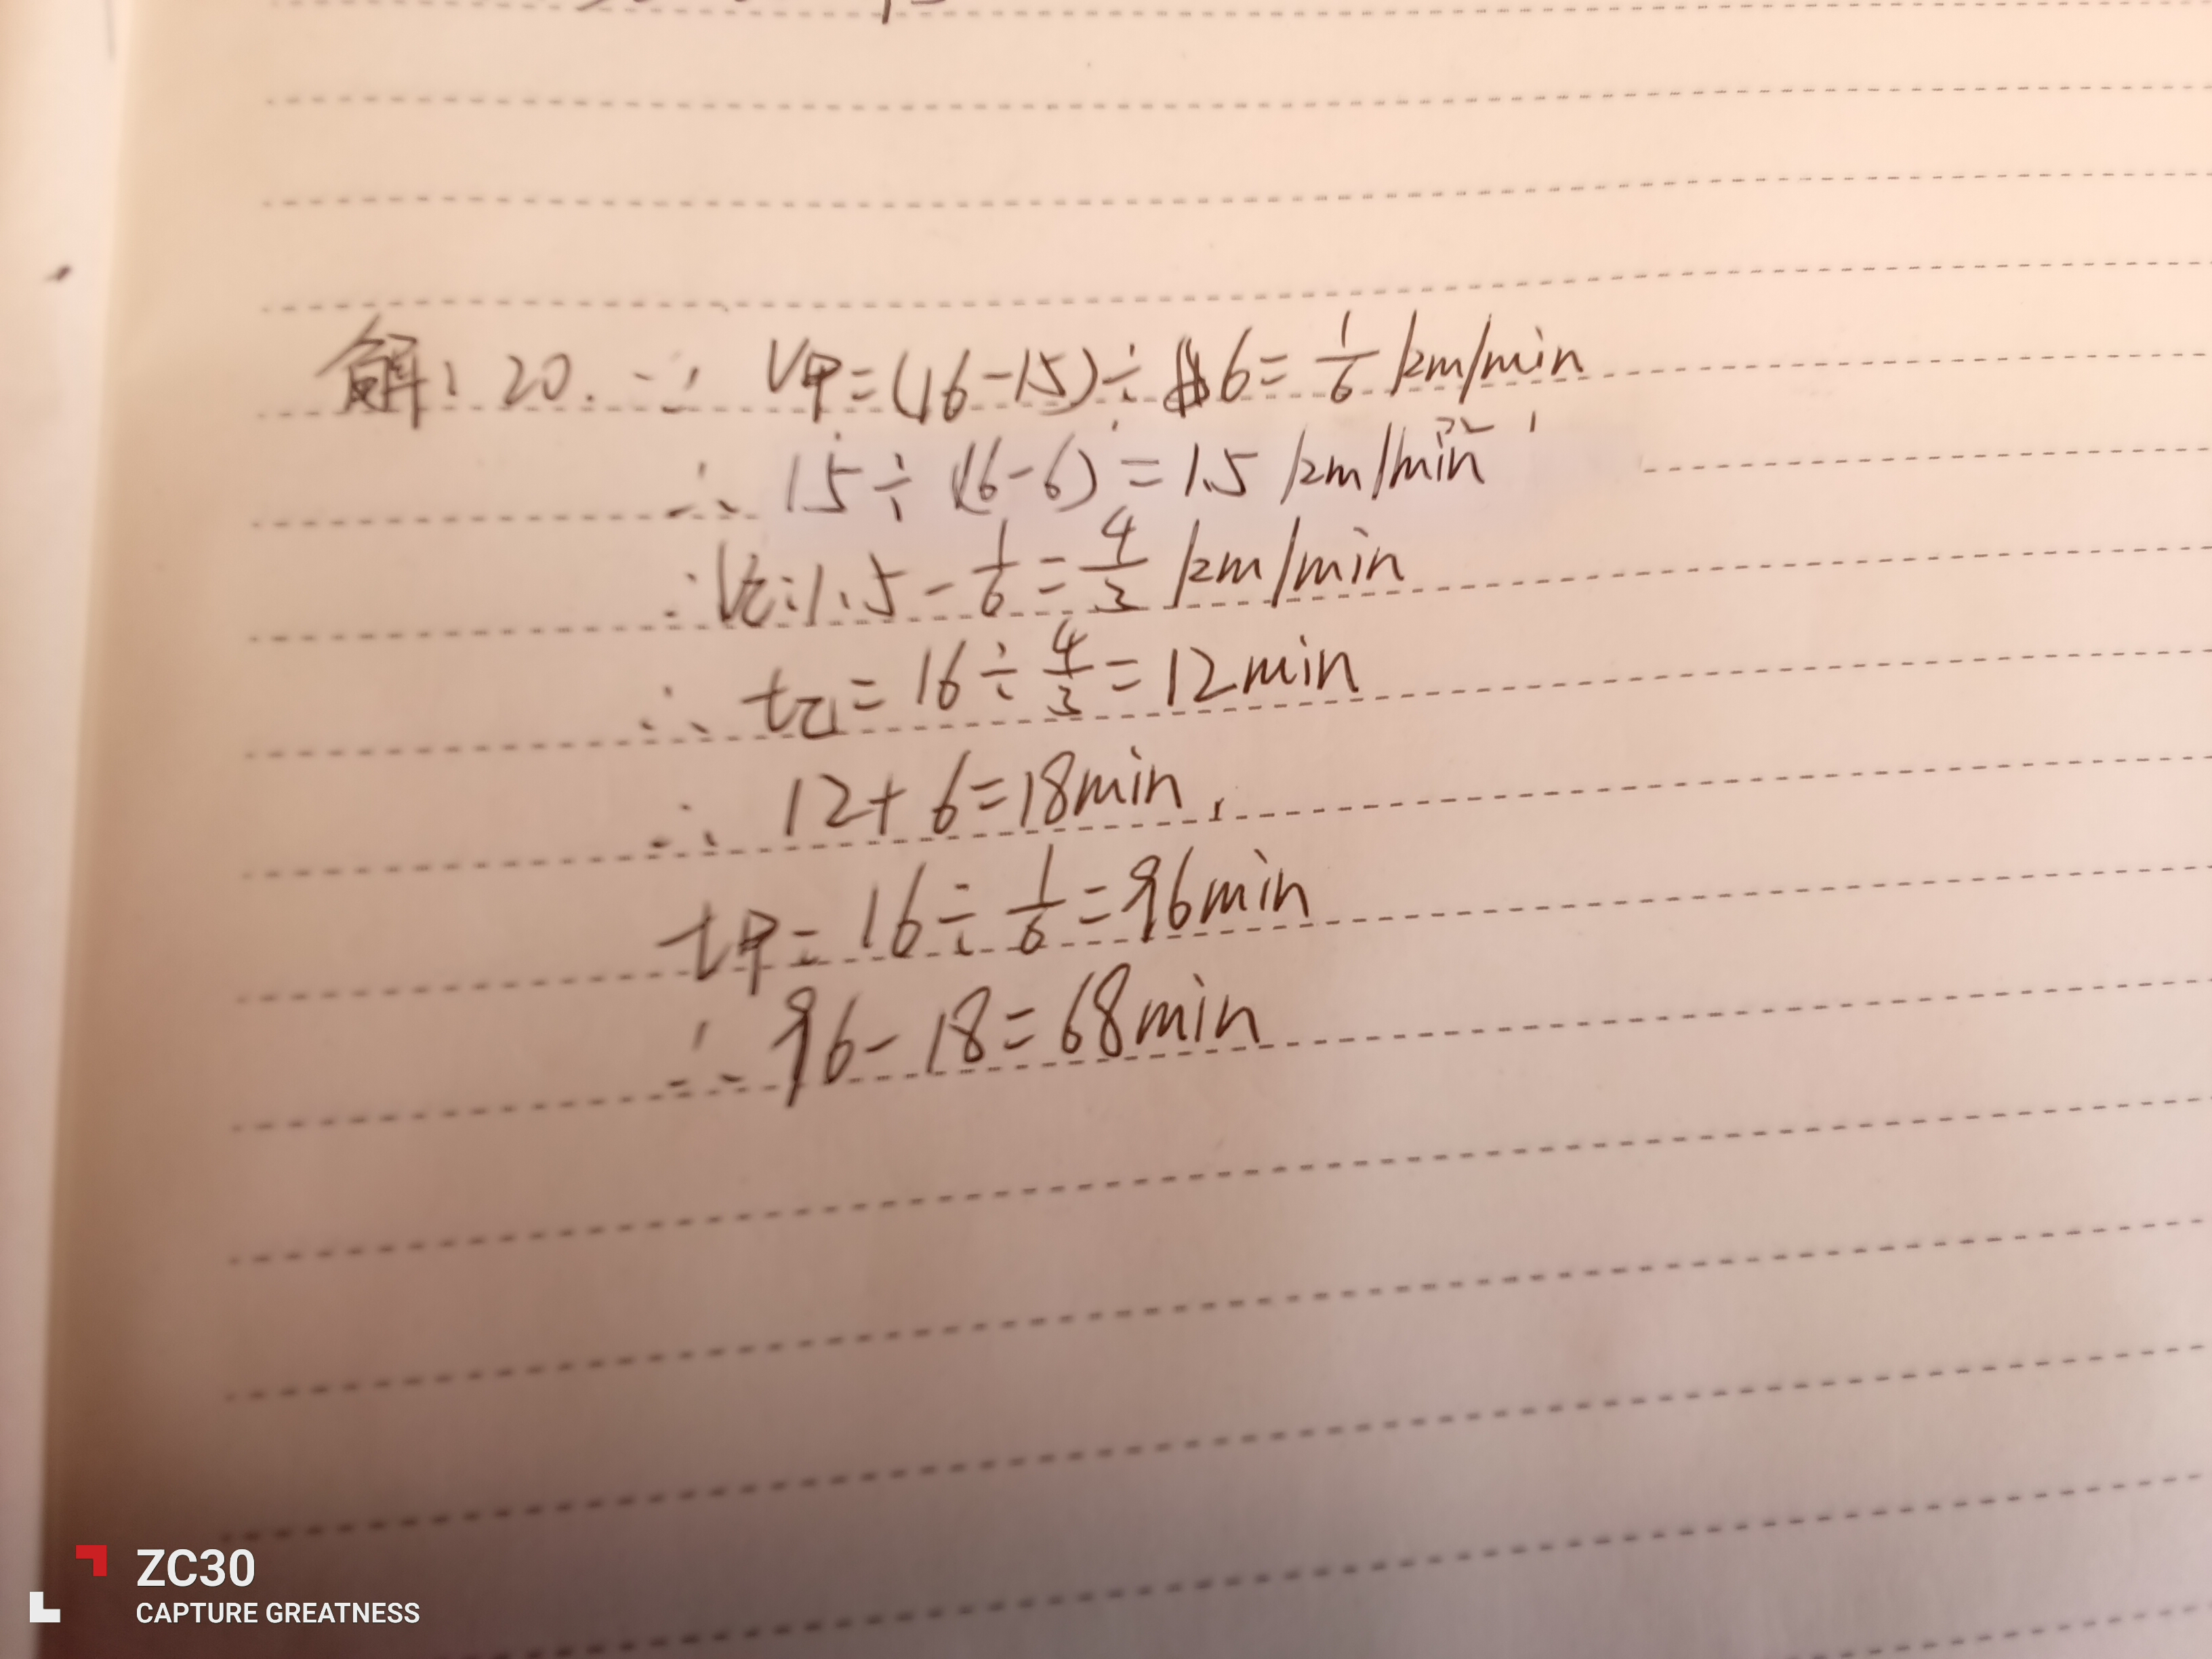 解：20. ∵ V甲=(16-15)÷6=1/6 km/min
∴ 15÷(16-6)=1.5 km/min
∴V乙=1.5-1/6=4/3 km/min
∴ t乙=16÷4/3=12min
∴ 12+6=18min,
t甲=16÷1/6=96min
∴ 96-18=68min
ZC30
CAPTURE GREATNESS